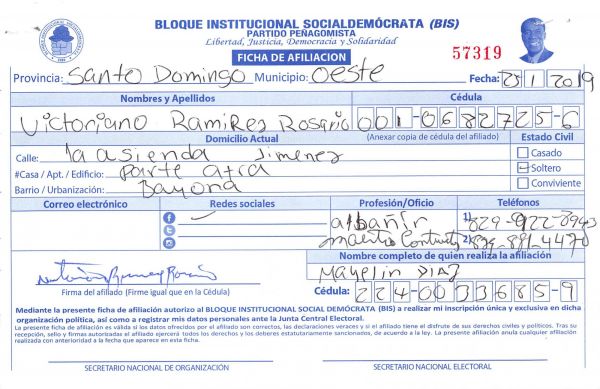 BLOQUE INSTITUCIONAL SOCIALDEMÓCRATA (BIS)
PARTIDO PEÑAGOMISTA
Libertad, Justicia, Democracia y Solidaridad
FICHA DE AFILIACION
57319
Provincia: Santo Domingo Municipio: Oeste Fecha: 25/1/2019
Nombres y Apellidos Cédula
Victoriano Ramirez Rosario 001-0682725-6
Domicilio Actual (Anexar copia de cédula del afiliado) Estado Civil
Calle: la asienda Jimenez Casado
#Casa / Apt. / Edificio: Parte atra Soltero
Barrio / Urbanización: Bayona Conviviente
Correo electrónico Redes sociales Profesión/Oficio Teléfonos
albañir 1) 829-922-8943
maestro 2)
Nombre completo de quien realiza la afiliación
Mayelin Diaz
Firma del afiliado (Firme igual que en la Cédula) Cédula: 224-0033685-9
Mediante la presente ficha de afiliación autorizo al BLOQUE INSTITUCIONAL SOCIAL DEMÓCRATA (BIS) a realizar mi inscripción única y exclusiva en dicha
organización política, así como a registrar mis datos personales ante la Junta Central Electoral.
La presente ficha de afiliación es válida si los datos ofrecidos por el afiliado son correctos, las declaraciones veraces y si el afiliado tiene el disfrute de sus derechos civiles y políticos. Tras su
recepción, selo y firmas autorizadas el afiliado ejercerá todos los derechos y los deberes estatutariamente sancionados, de acuerdo a la ley. La presente afiliación anula cualquier afiliación
realizada con anterioridad a la fecha que aparece en esta ficha.
SECRETARIO NACIONAL DE ORGANIZACIÓN SECRETARIO NACIONAL ELECTORAL